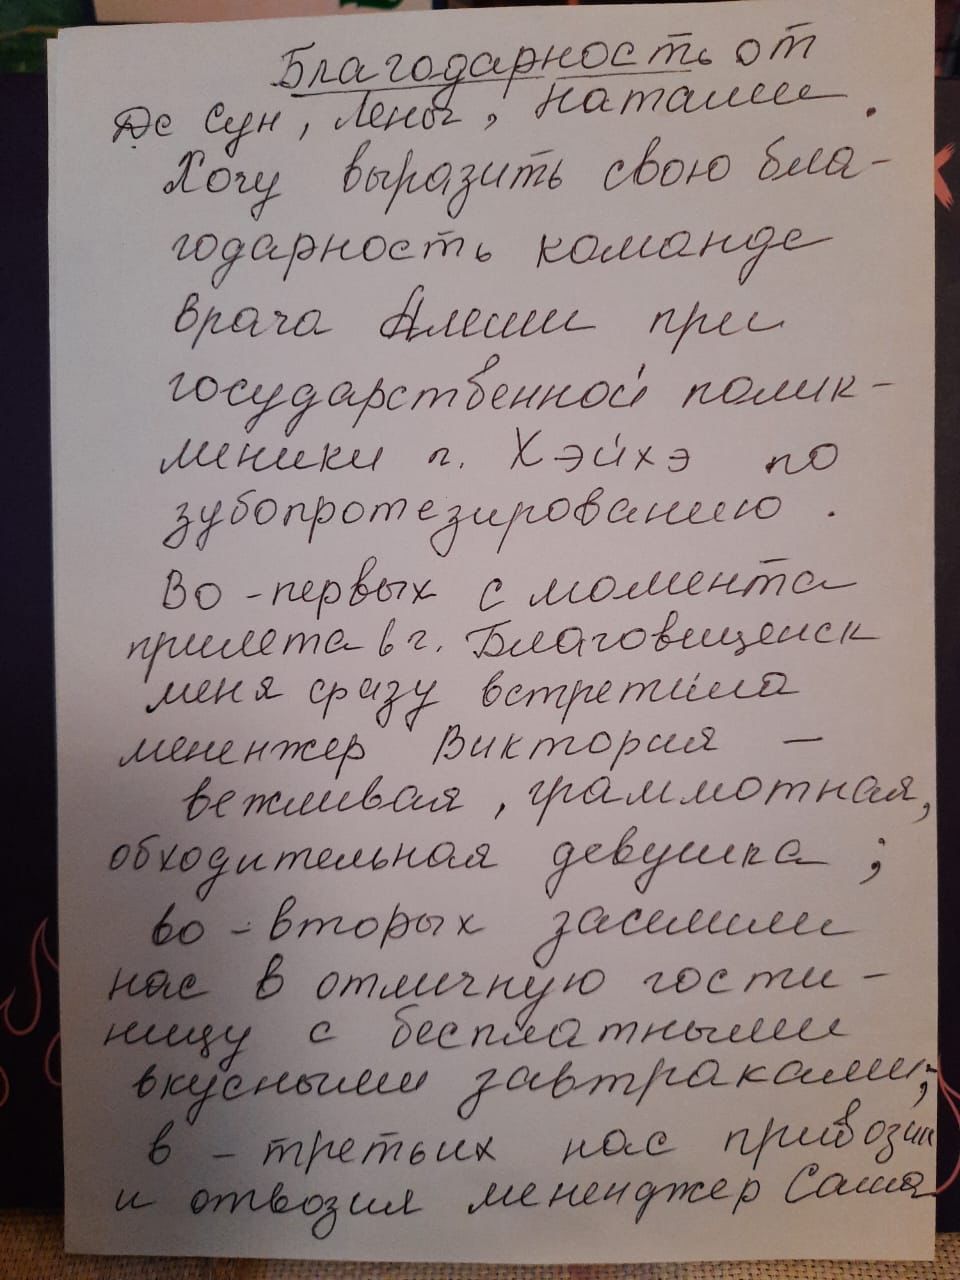 Благодарность от
Де Сун, Лены, Наталии.
Хочу выразить свою бла-
годарность команде
врача Алеши при
государственной полик-
линики г. Хэйхэ по
зубопротезированию.
Во-первых с момента
прилета в г. Благовещенск
меня сразу встретила
мененжер Виктория —
вежливая, грамотная,
обходительная девушка;
во-вторых заселили
нас в отличную гости-
ницу с бесплатными
вкусными завтраками;
в-третьих нас привозил
и отвозил мененджер Саша